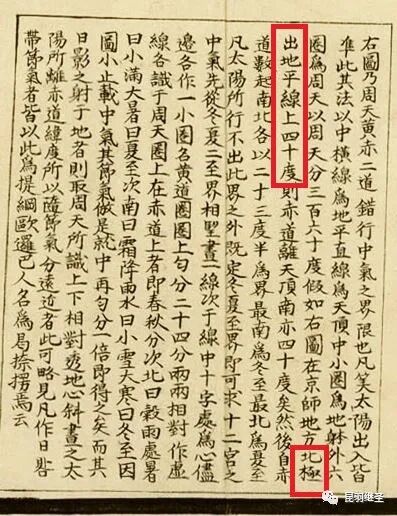 右圖乃周天黃赤二道錯行中氣之界限也凡筭太陽出入皆
準此其法以中橫線爲地平直線爲天頂中小圈爲地躰外六
圈爲周天以周天分三百六十度假如右圖在京師地方北極
出地平線上四十度則赤道離天頂南亦四十度矣然後自赤
道數起南北各以二十三度半爲界最南爲冬至最北爲夏至
凡太陽所行不出此界之外既定冬夏至界即可求十二宮之
中氣先從冬夏二至界相望畫一線次于線中十字處爲心儘
邊各作一小圈名黃道圈圈上勻分二十四分兩兩相對作虛
線各識于周天圈上在赤道上者即春秋分次北曰穀雨處暑
曰小滿大暑曰夏至次南曰霜降雨水曰小雪大寒曰冬至因
圖小止載中氣其節氣倣是就中再勻分一倍即得之矣而其
日影之射于地者則取周天所識上下相對透地心斜畫之太
陽所離赤道緯度所以隨節氣分遠近者此可略見凡作日晷
帶節氣者皆以此爲提綱歐邏巴人名爲曷捺楞焉云
昆羽继圣